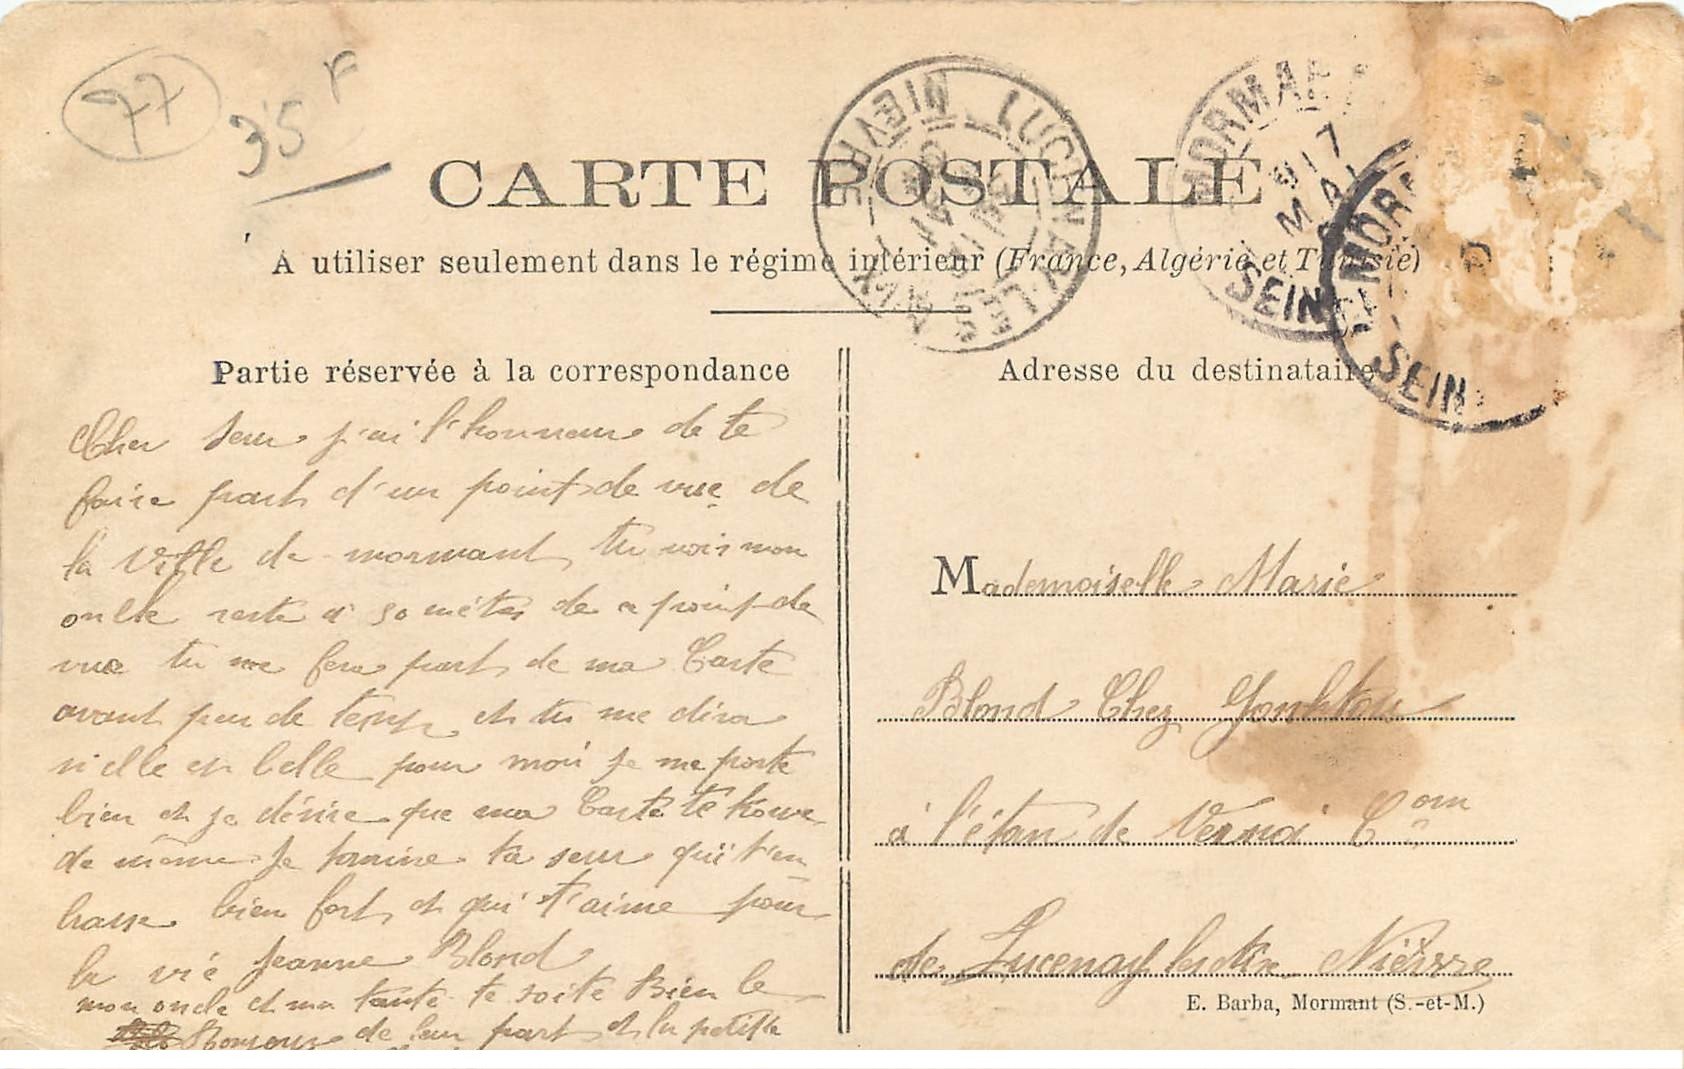 77
35 F
CARTE POSTALE
A utiliser seulement dans le régime intérieur (France, Algérie et Tunisie)
LUCENAY-LES-AIX
NIEVRE
MORMANT
17
MAI
SEINE
MORM
SEIN
Partie réservée à la correspondance
Cher seur j'ai l'honneur de te
faire part d'un point de vue de
la Ville de mormant tu vois mon
oncle reste a 50 mètres de a point de
vue tu me fera part de ma Carte
avant peu de temp et tu me dira
si elle es belle pour moi je me porte
bien et je désire que ma Carte te trouve
de même Je termine ta seur qui t'em
brasse bien fort et qui t'aime pour
la vie Jeanne Blond
mon oncle et ma tante te soite Bien le
Bonjour de leur part et la petite
Adresse du destinataire
Mademoiselle Marie
Blond Chez
à l'étan de Vernoi Com
de Lucenay les Aix Nièvre
E. Barba, Mormant (S.-et-M.)